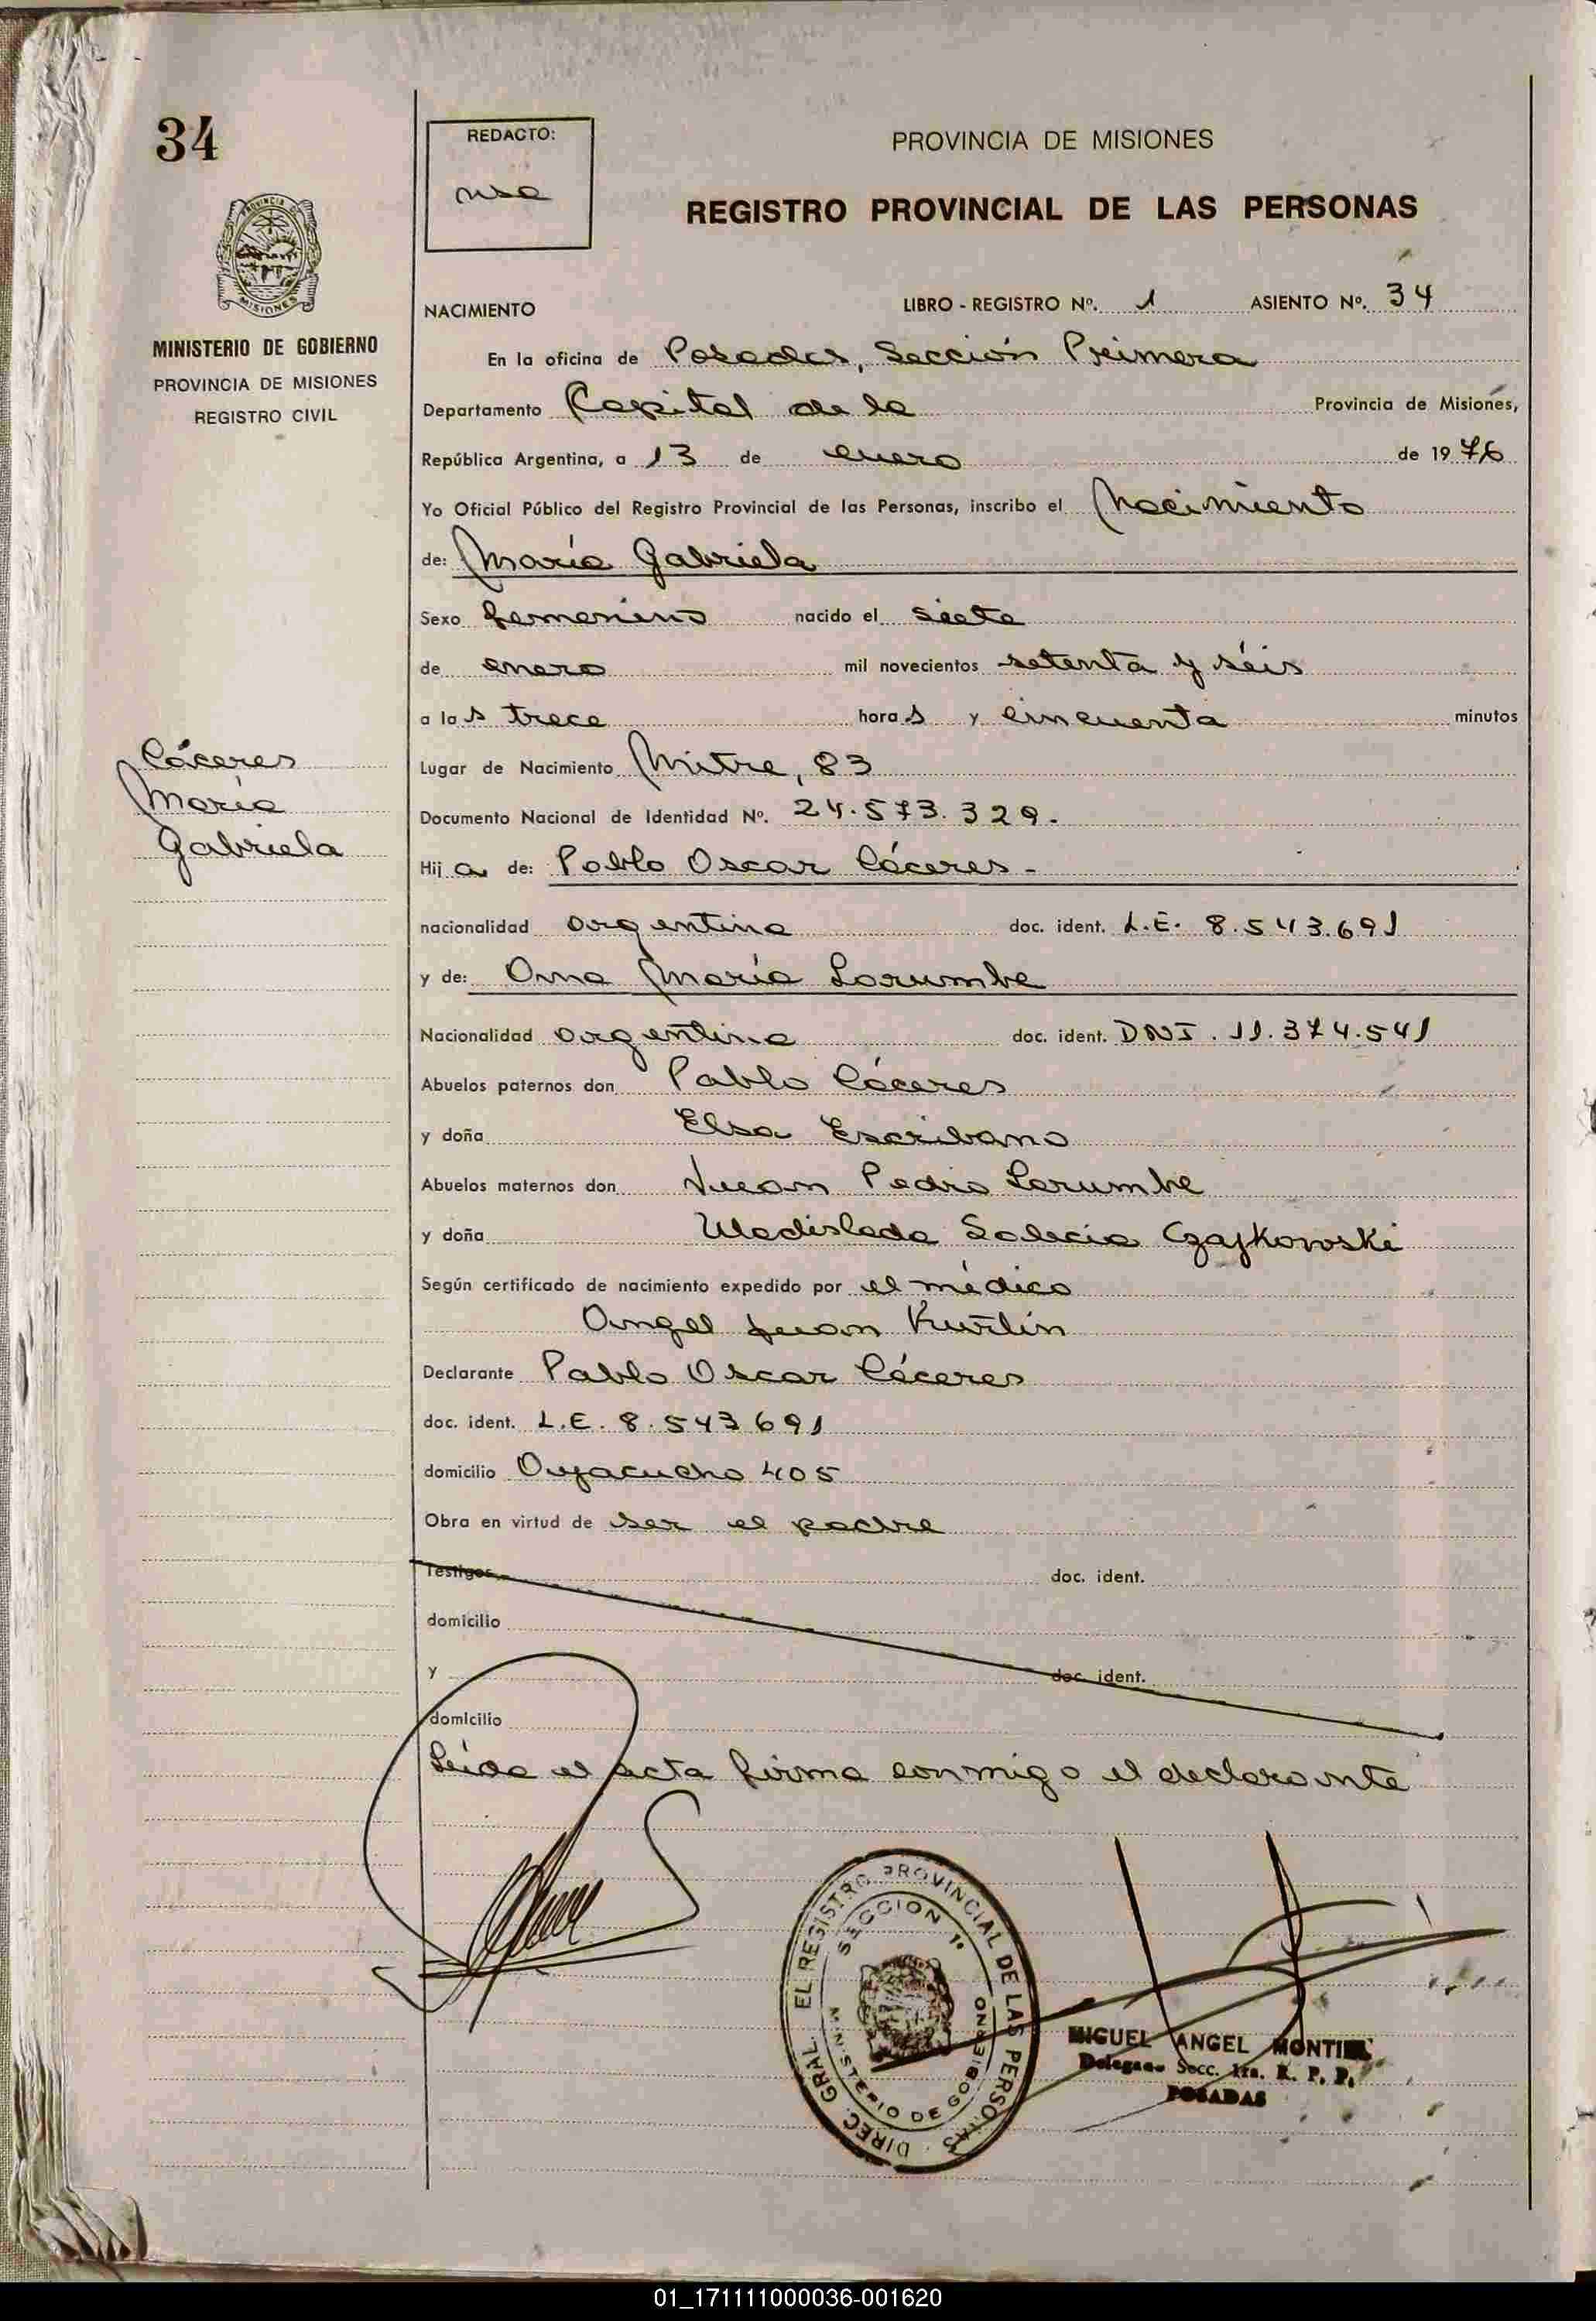 34
REDACTO:
PROVINCIA DE MISIONES
REGISTRO PROVINCIAL DE LAS PERSONAS
PROVINCIA DE
MISIONES
MINISTERIO DE GOBIERNO
PROVINCIA DE MISIONES
REGISTRO CIVIL
NACIMIENTO LIBRO - REGISTRO Nº. 1 ASIENTO Nº. 34
En la oficina de Posadas, Sección Primera
Departamento Capital de la Provincia de Misiones,
República Argentina, a 13 de enero de 1976
Yo Oficial Público del Registro Provincial de las Personas, inscribo el Nacimiento
de: María Gabriela
Sexo femenino nacido el siete
de enero mil novecientos setenta y séis
a las trece horas y cincuenta minutos
Cáceres
María
Gabriela
Lugar de Nacimiento Mitre, 83
Documento Nacional de Identidad Nº. 24.573.329.
Hija de: Pablo Oscar Cáceres -
nacionalidad argentina doc. ident. L.E. 8.543.691
y de: Ana María Larumbe
Nacionalidad argentina doc. ident. DNI. 11.374.541
Abuelos paternos don Pablo Cáceres
y doña Elsa Escribano
Abuelos maternos don Juan Pedro Larumbe
y doña Uladislada Czajkowski
Según certificado de nacimiento expedido por el médico
Angel Juan Kurtin
Declarante Pablo Oscar Cáceres
doc. ident. L.E. 8.543691
domicilio Ayacucho 405
Obra en virtud de ser el padre
Testigos doc. ident.
domicilio
y doc. ident.
domicilio
Leida el acta firma conmigo el declarante
DIREC. GRAL. EL REGISTRO PROVINCIAL DE LAS PERSONAS
SECCION 1ª
MINISTERIO DE GOBIERNO
MIGUEL ANGEL MONTIEL
Delegado Secc. 1ra. R. P. P.
POSADAS
01_171111000036-001620